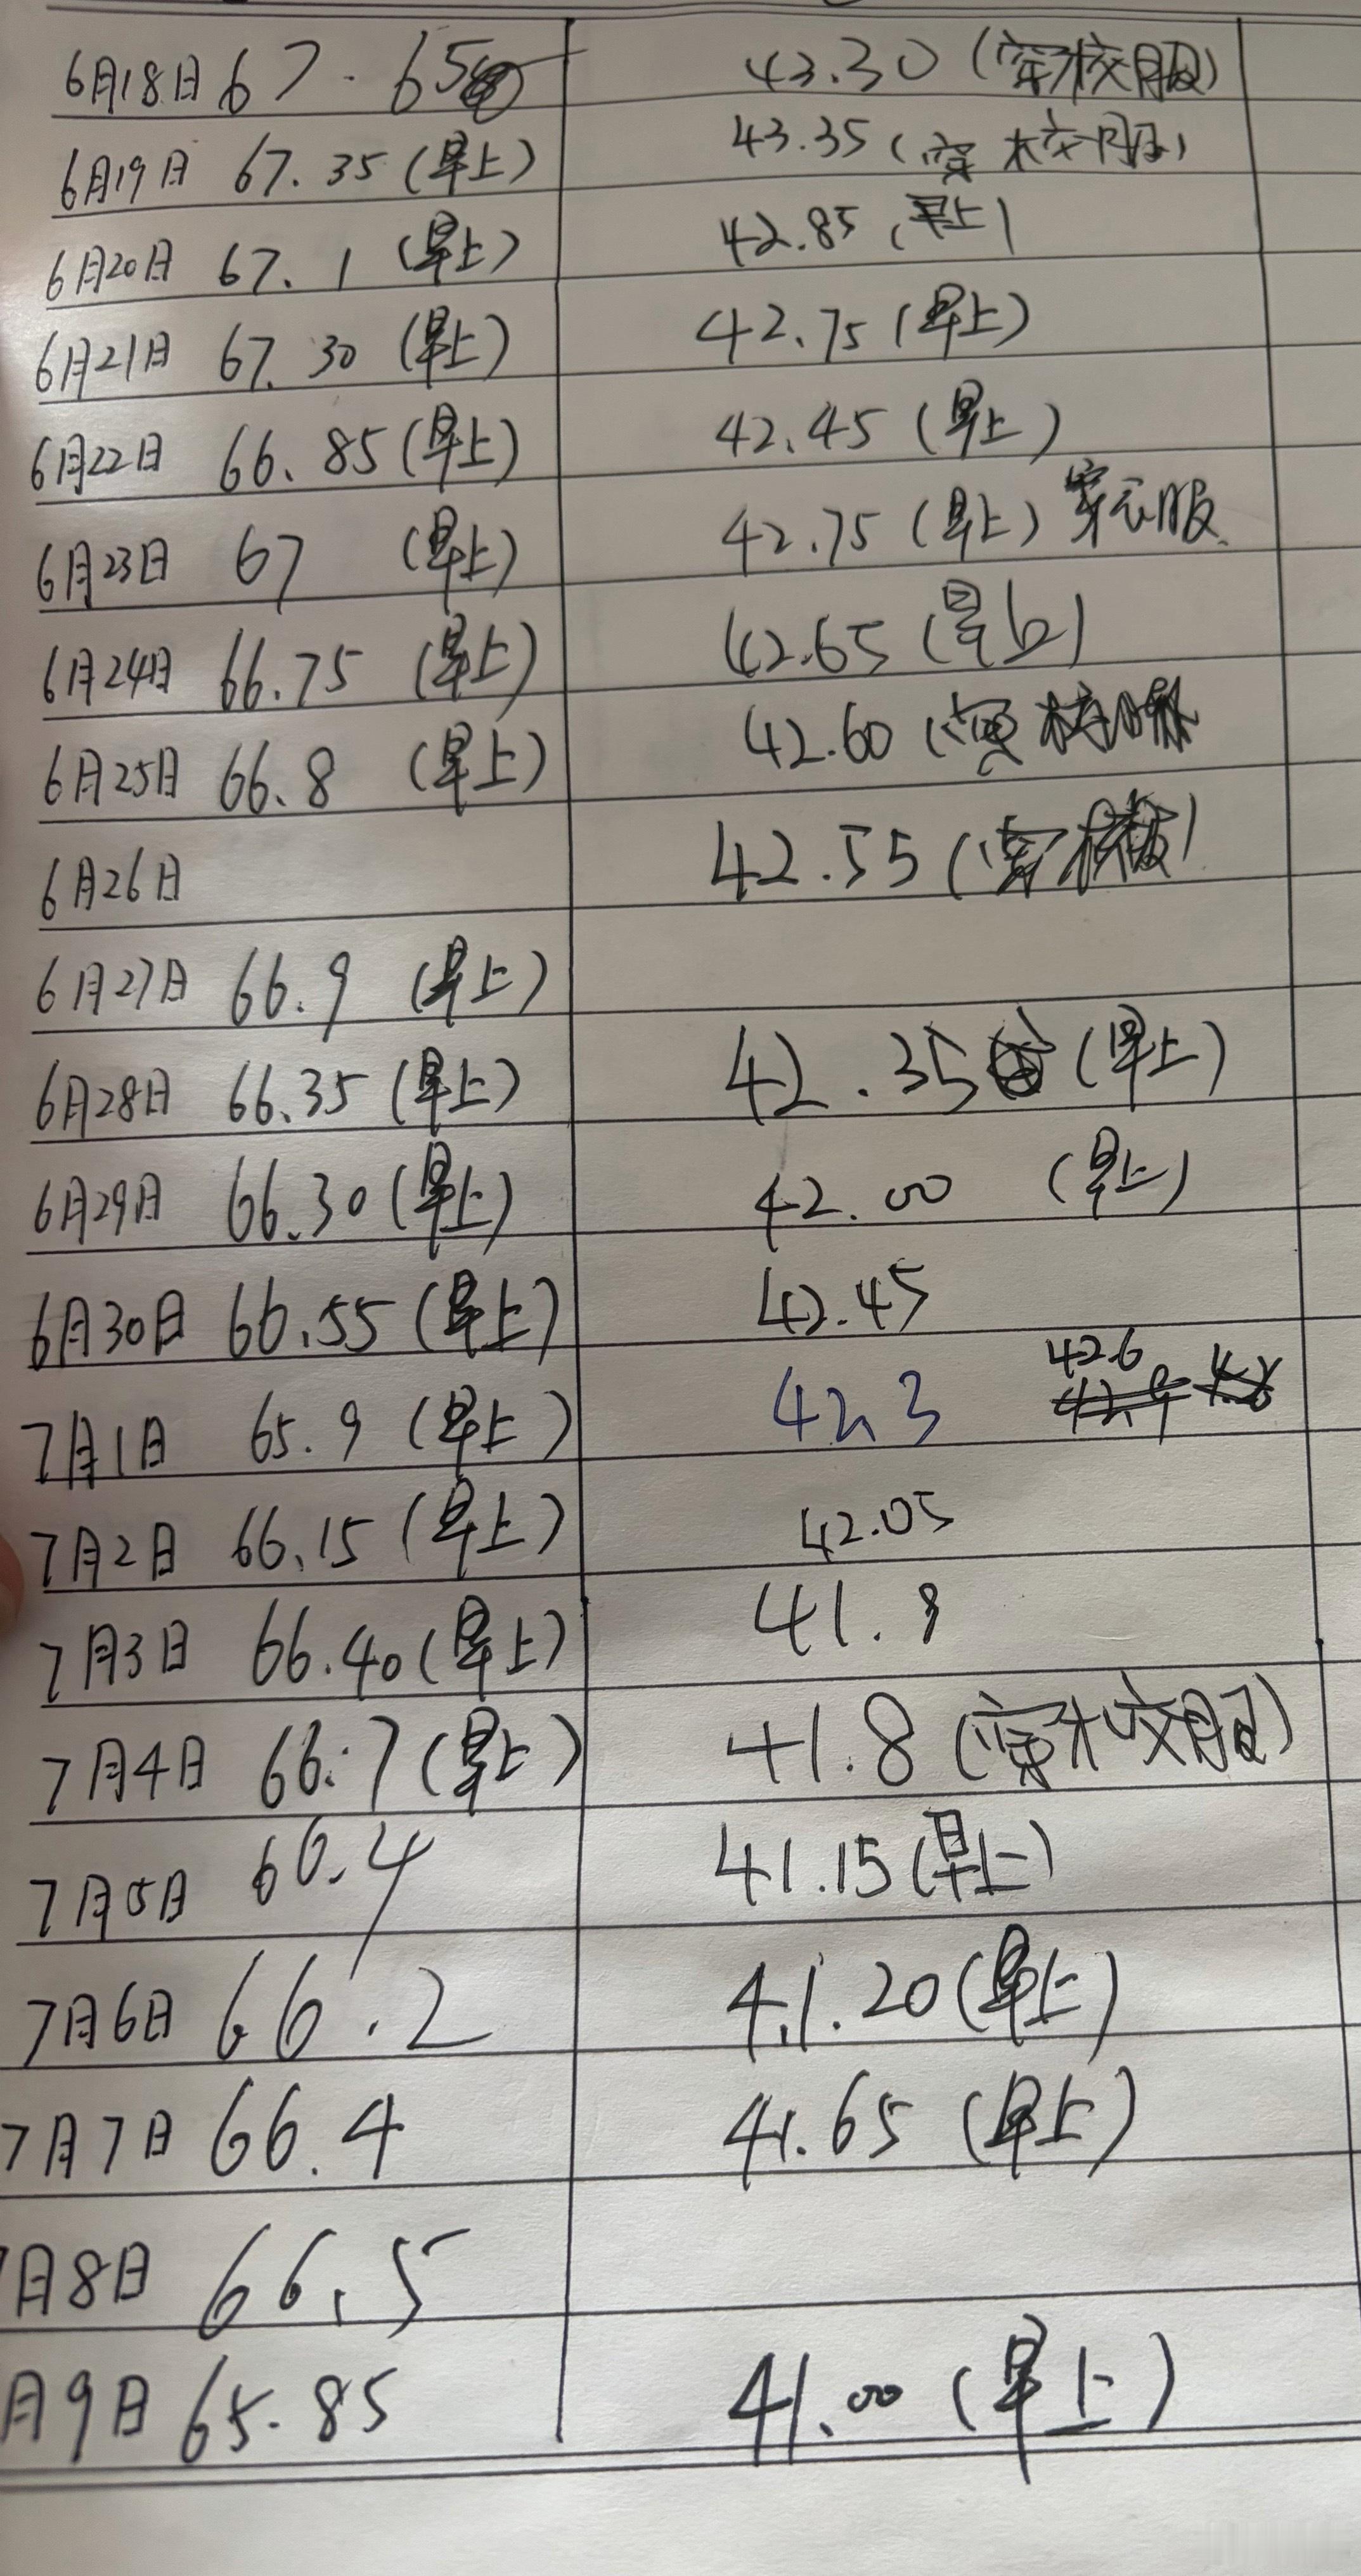 6月18日 67.65 43.30 (穿校服)
6月19日 67.35 (早上) 43.35 (穿校服)
6月20日 67.1 (早上) 42.85 (早上)
6月21日 67.30 (早上) 42.75 (早上)
6月22日 66.85 (早上) 42.45 (早上)
6月23日 67 (早上) 42.75 (早上) 穿衣服
6月24日 66.75 (早上) 42.65 (早上)
6月25日 66.8 (早上) 42.60 (穿校服
6月26日 42.55 (穿校服)
6月27日 66.9 (早上)
6月28日 66.35 (早上) 42.35 (早上)
6月29日 66.30 (早上) 42.00 (早上)
6月30日 66.55 (早上) 42.45
7月1日 65.9 (早上) 42.3 42.6
7月2日 66.15 (早上) 42.05
7月3日 66.40 (早上) 41.9
7月4日 66.7 (早上) 41.8 (穿校服)
7月5日 66.4 41.15 (早上)
7月6日 66.2 41.20 (早上)
7月7日 66.4 41.65 (早上)
月8日 66.5
月9日 65.85 41.00 (早上)